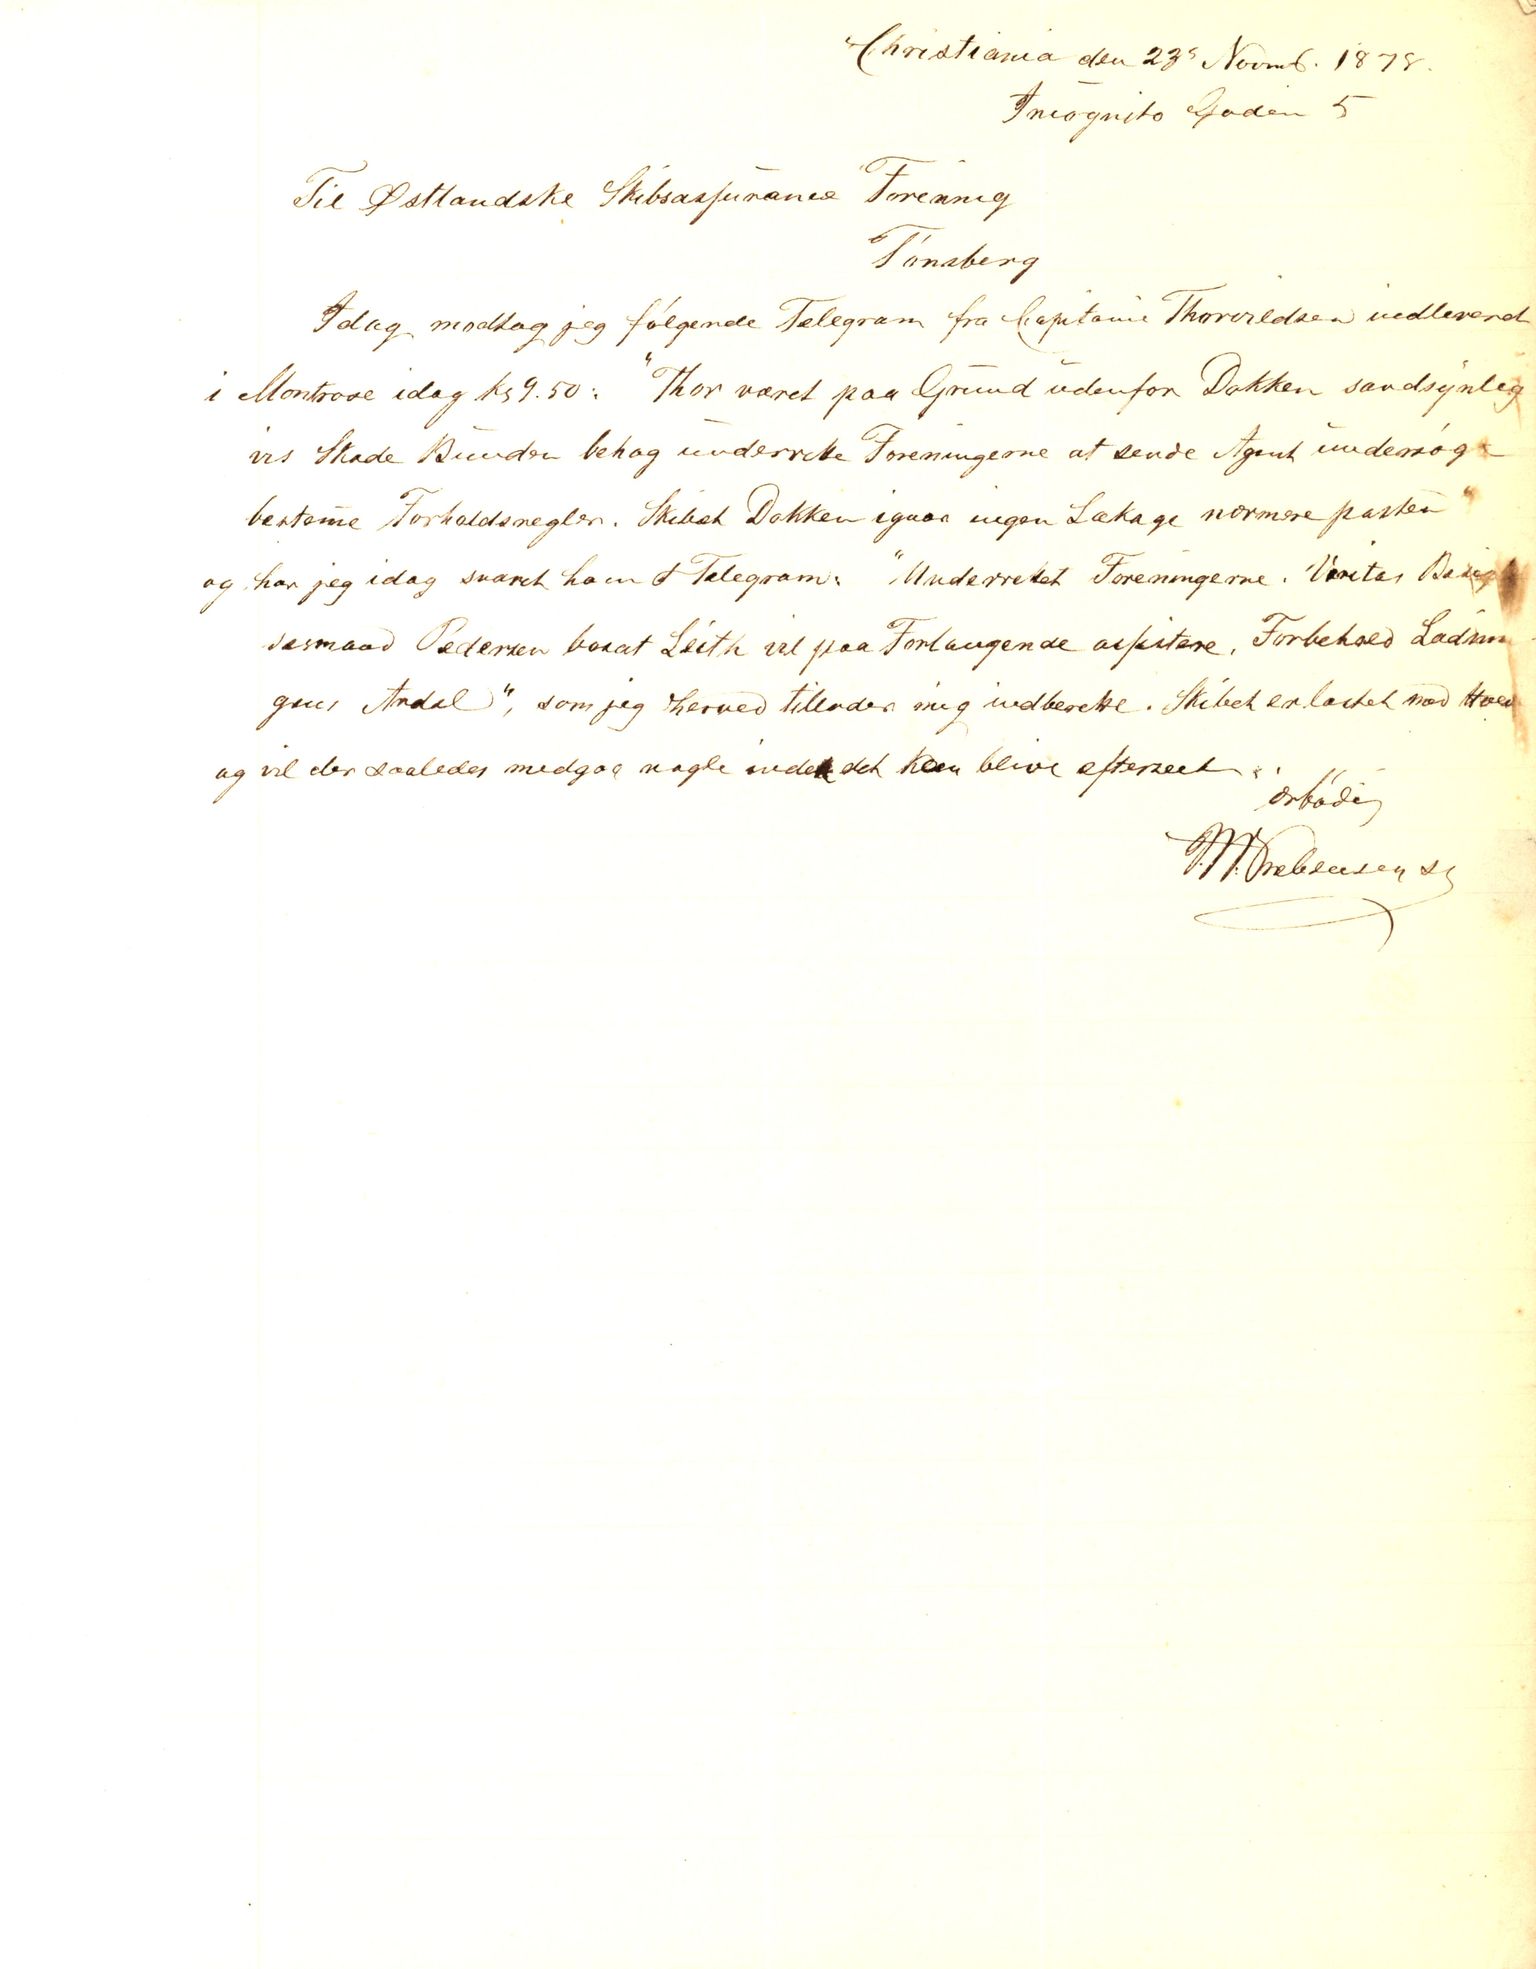 Christiania den 23de Novmb. 1878.
Incognito Gaden 5
Til Østlandske Skibsassurance Forening
Tønsberg
Idag modtog jeg følgende Telegram fra Capitain Thorvildsen indleveret
i Montrose idag kl 9.50: "Thor været paa Grund udenfor Dokken sandsynlig
vis Skade Bunden behag underrette Foreningerne at sende Agent undersøge
bestemme Forholdsregler. Skibet Dokken igaar ingen Lækage nærmere posten"
og har jeg idag svaret ham pr Telegram: "Underrettet Foreningerne. Veritas Besig
sesmand Pedersen bosat Leith vil paa Forlangende assistere, Forbehold Ladnin
gens Andel", som jeg herved tillader mig indberette. Skibet er lastet med
og vil der saaledes medgaa nogle inden det kan blive efterseet.
Ærbødig